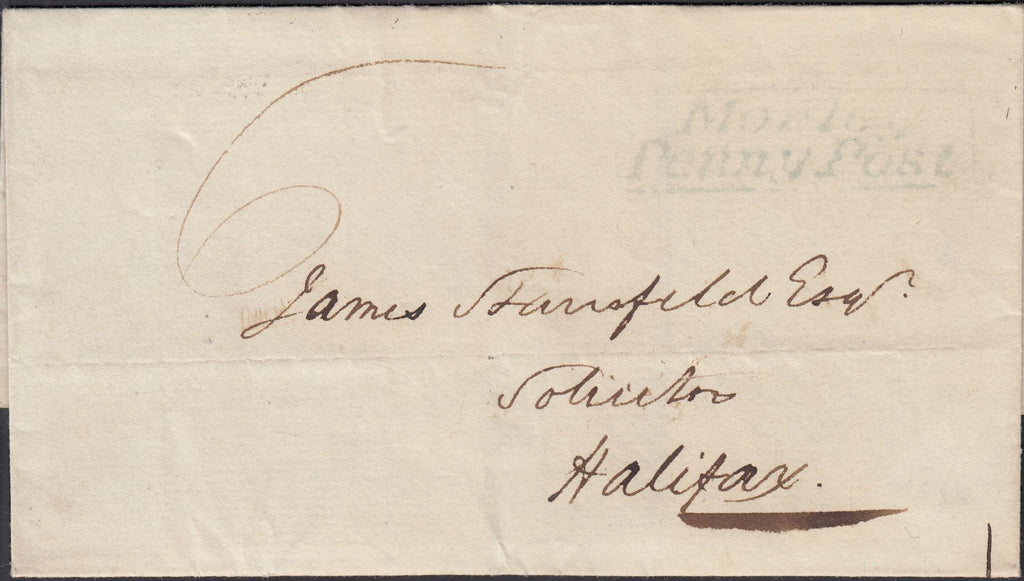 6
Morley
Penny Post
James Stansfeld Esqr.
Solicitor
Halifax.